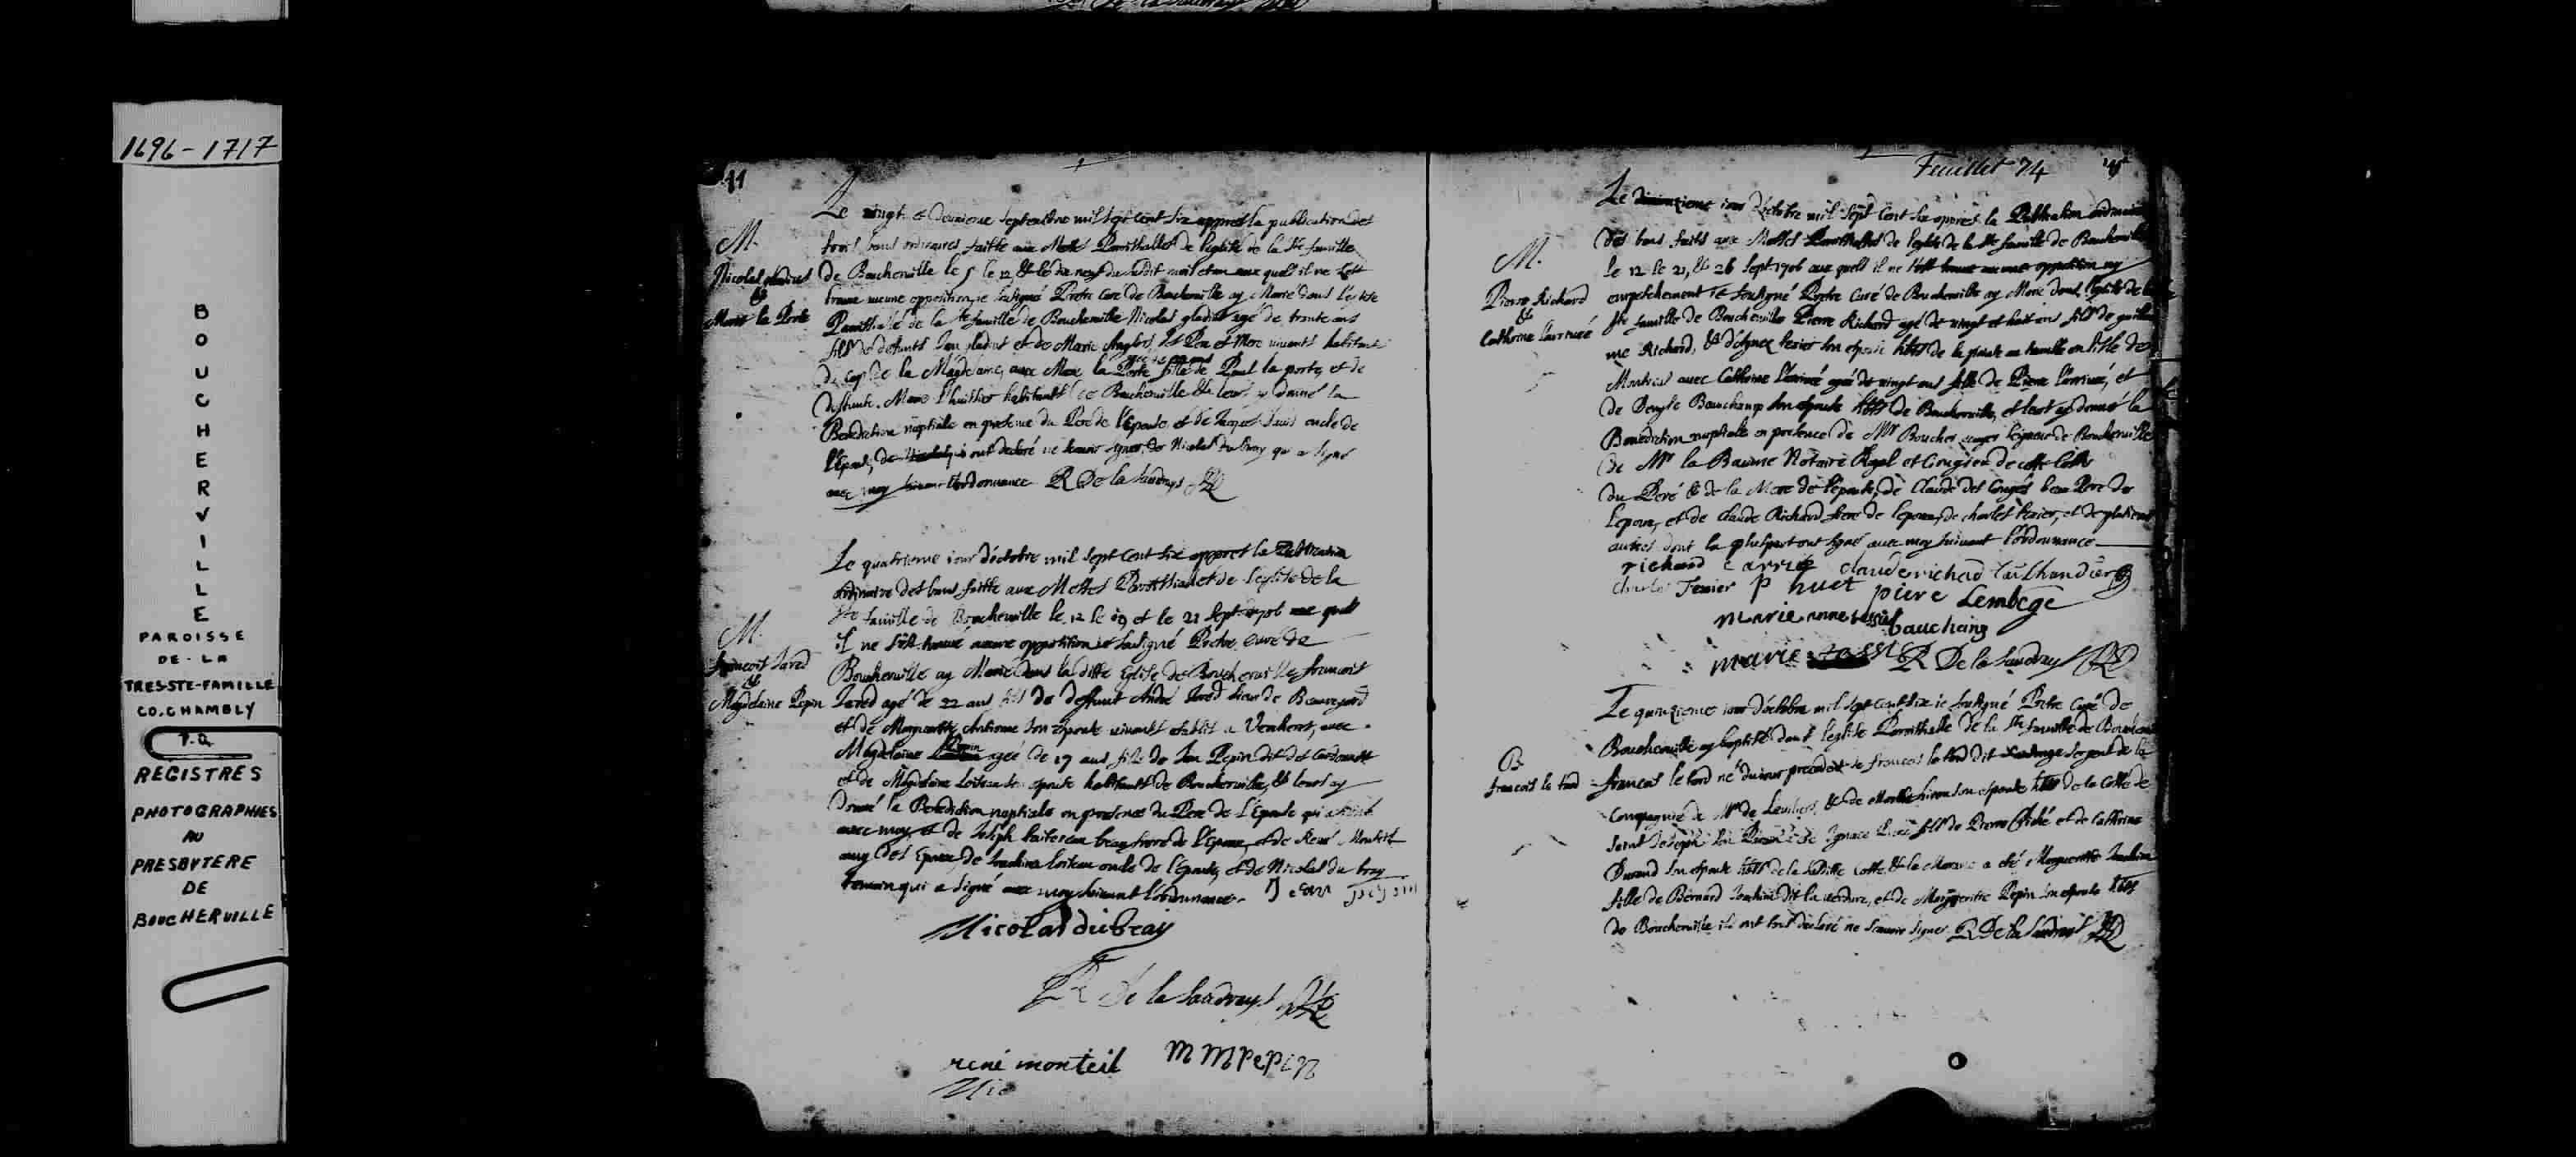 1696-1717
BOUCHERVILLE
PAROISSE
DE-LA
TRES-STE-FAMILLE
CO.CHAMBLY
P.Q.
REGISTRES
PHOTOGRAPHIES
AU
PRESBYTERE
DE
BOUCHERVILLE
Le vingt et deuxieme septembre mil sept cent six appres la publication des
trois bans ordinaires faitte aux Messes Parroissialles de l'eglise de la Ste famille
M.
Nicolas gladus
&
Marie la Porte
de Boucherville le 5 le 12 & le dix neuf du susdit mois et an aux quels il ne s'est
trouvé aucune opposition, ie soussigné Prêtre Curé de Boucherville ay Marié dans l'eglise
Parroissiale de la Ste famille de Boucherville Nicolas gladus agé de trente ans
fils de defunts Jean gladus et de Marie Anglois, Pere et Mere vivants habitants
du cap de la Magdelaine, avec Marie la Porte fille de Paul la porte, et de
deffunte Marie l'huissier habitants de Boucherville & leur ay donné la
Benediction nuptiale en presence du Pere de l'Epouse et de Jacques oncle de
l'Epouse, de qui ont declaré ne scavoir signer, de Nicolas dubray qui a signé
avec moy suivant l'ordonnance R De la Saudrays
Le quatrieme iour d'octobre mil sept cent six appres la Publication
ordinaire des bans faitte aux Messes Parroissialles de l'eglise de la
Ste famille de Boucherville le 12 le 19 et le 21 Sept. 1706 aux quels
M.
francois Jared
&
Magdelaine Pepin
il ne s'est trouvé aucune opposition ie soussigné Prêtre Curé de
Boucherville ay Marié dans la ditte Eglise de Boucherville francois
Jared agé de 22 ans fils de deffunt André Jared Sieur de Beauregard
et de Marguerite Antiome son epouse vivants establis a Vercheres, avec
Magdelaine Pepin agée de 17 ans fille de Jean Pepin dit des Cardonnets
et de Magdelaine Loiseau son epouse habitants de Boucherville, & leur ay
donné la Benediction nuptiale en presence du Pere de L'Epouse qui a signé
avec moy, et de Joseph beau frere de l'Epoux, et de René Monteil
amy des Epoux, de Joachim loiseau oncle de l'epouse, et de Nicolas du bray
temoin qui a signé avec moy suivant l'ordonnance. Jean pepin
Nicolas dubray
R De la Saudrays
rené monteil M M Pepin
Nic
Feuillet 74
Le iour d'octobre mil sept cent six appres la Publication ordinaire
des bans faits aux Messes Parroissialles de l'eglise de la Ste famille de Boucherville
M.
Pierre Richard
&
Catherine l'arrivée
le 12 le 21, & 26 Sept 1706 aux quels il ne s'est trouvé aucune opposition ny
empeschement ie soussigné Prêtre Curé de Boucherville ay Marié dans l'eglise de la
Ste famille de Boucherville Pierre Richard agé de vingt et huit ans fils de guillau
me Richard, & d'Agnez texier son epouse hbts de la pointe au tremble en l'isle de
Montreal avec Catherine l'arrivée agée de vingt ans fille de Pierre l'arrivée, et
de Denyse Beauchamp son epouse hbts de Boucherville, et leur ay donné la
Benediction nuptiale en presence de Mr Boucher seigneur de Boucherville
de Mr la Baume Notaire Royal et Cirugien de cette Coste
du Peré & de la Mere de l'epouse, de Claude des Congés beau Pere de
l'epoux, et de Claude Richard frere de l'epoux, de charles texier, et de plusieurs
autres dont la pluspart ont signé avec moy suivant l'ordonnance
richard Larrivé claude richard Tailhandier
charles Texier P huet piere Lembege
marie anne
marie R De la Saudrays
Le quinzieme iour d'octobre mil sept cent six ie soussigné Prêtre Curé de
Boucherville ay baptisé dans l'eglise Parroissialle de la Ste famille de Boucherville
B.
francois le tard
francois le tard né du iour precedent de francois le tard dit sergent de la
Compagnie de Mr de & de Marthe son epouse hbts de la Coste de
Saint Joseph, son Parain a été Ignace Piché fils de Pierre Piché et de Catherine
Durand son epouse hbts de la susditte Coste & la Maraine a été Marguerite Joachim
fille de Bernard Joachim dit la verdure, et de Marguerite Pepin son epouse hbts
de Boucherville ils ont tous declaré ne scavoir signer R De la Saudrays